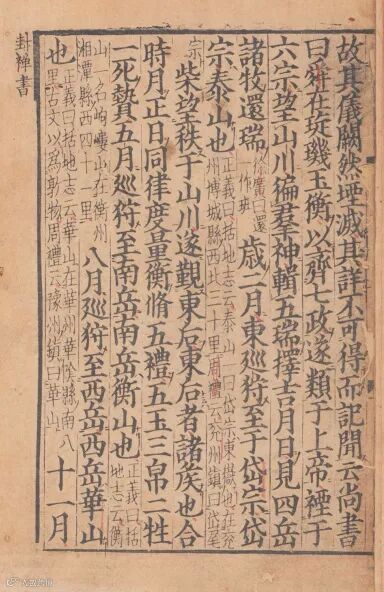 故其儀闕然堙滅其詳不可得而記聞云尚書
曰舜在琁璣玉衡以齊七政遂類于上帝禋于
六宗望山川徧羣神輯五瑞擇吉月日見四岳
諸牧還瑞徐廣曰還一作班歲二月東巡狩至于岱宗岱
宗泰山也正義括地志云泰山一曰岱宗東嶽也在兗州博城縣西北三十里周禮云兗州鎮曰岱
宗柴望秩于山川遂覲東后東后者諸矦也合
時月正日同律度量衡脩五禮五玉三帛二牲
一死贄五月巡狩至南岳南岳衡山也正義曰括地志云衡
山一名岣嶁山在衡州湘潭縣西四十一里八月巡狩至西岳西岳華山
也正義曰括地志云華山在華州華陰縣南八里古文以為敦物周禮云豫州鎮曰華山十一月
卦禅書